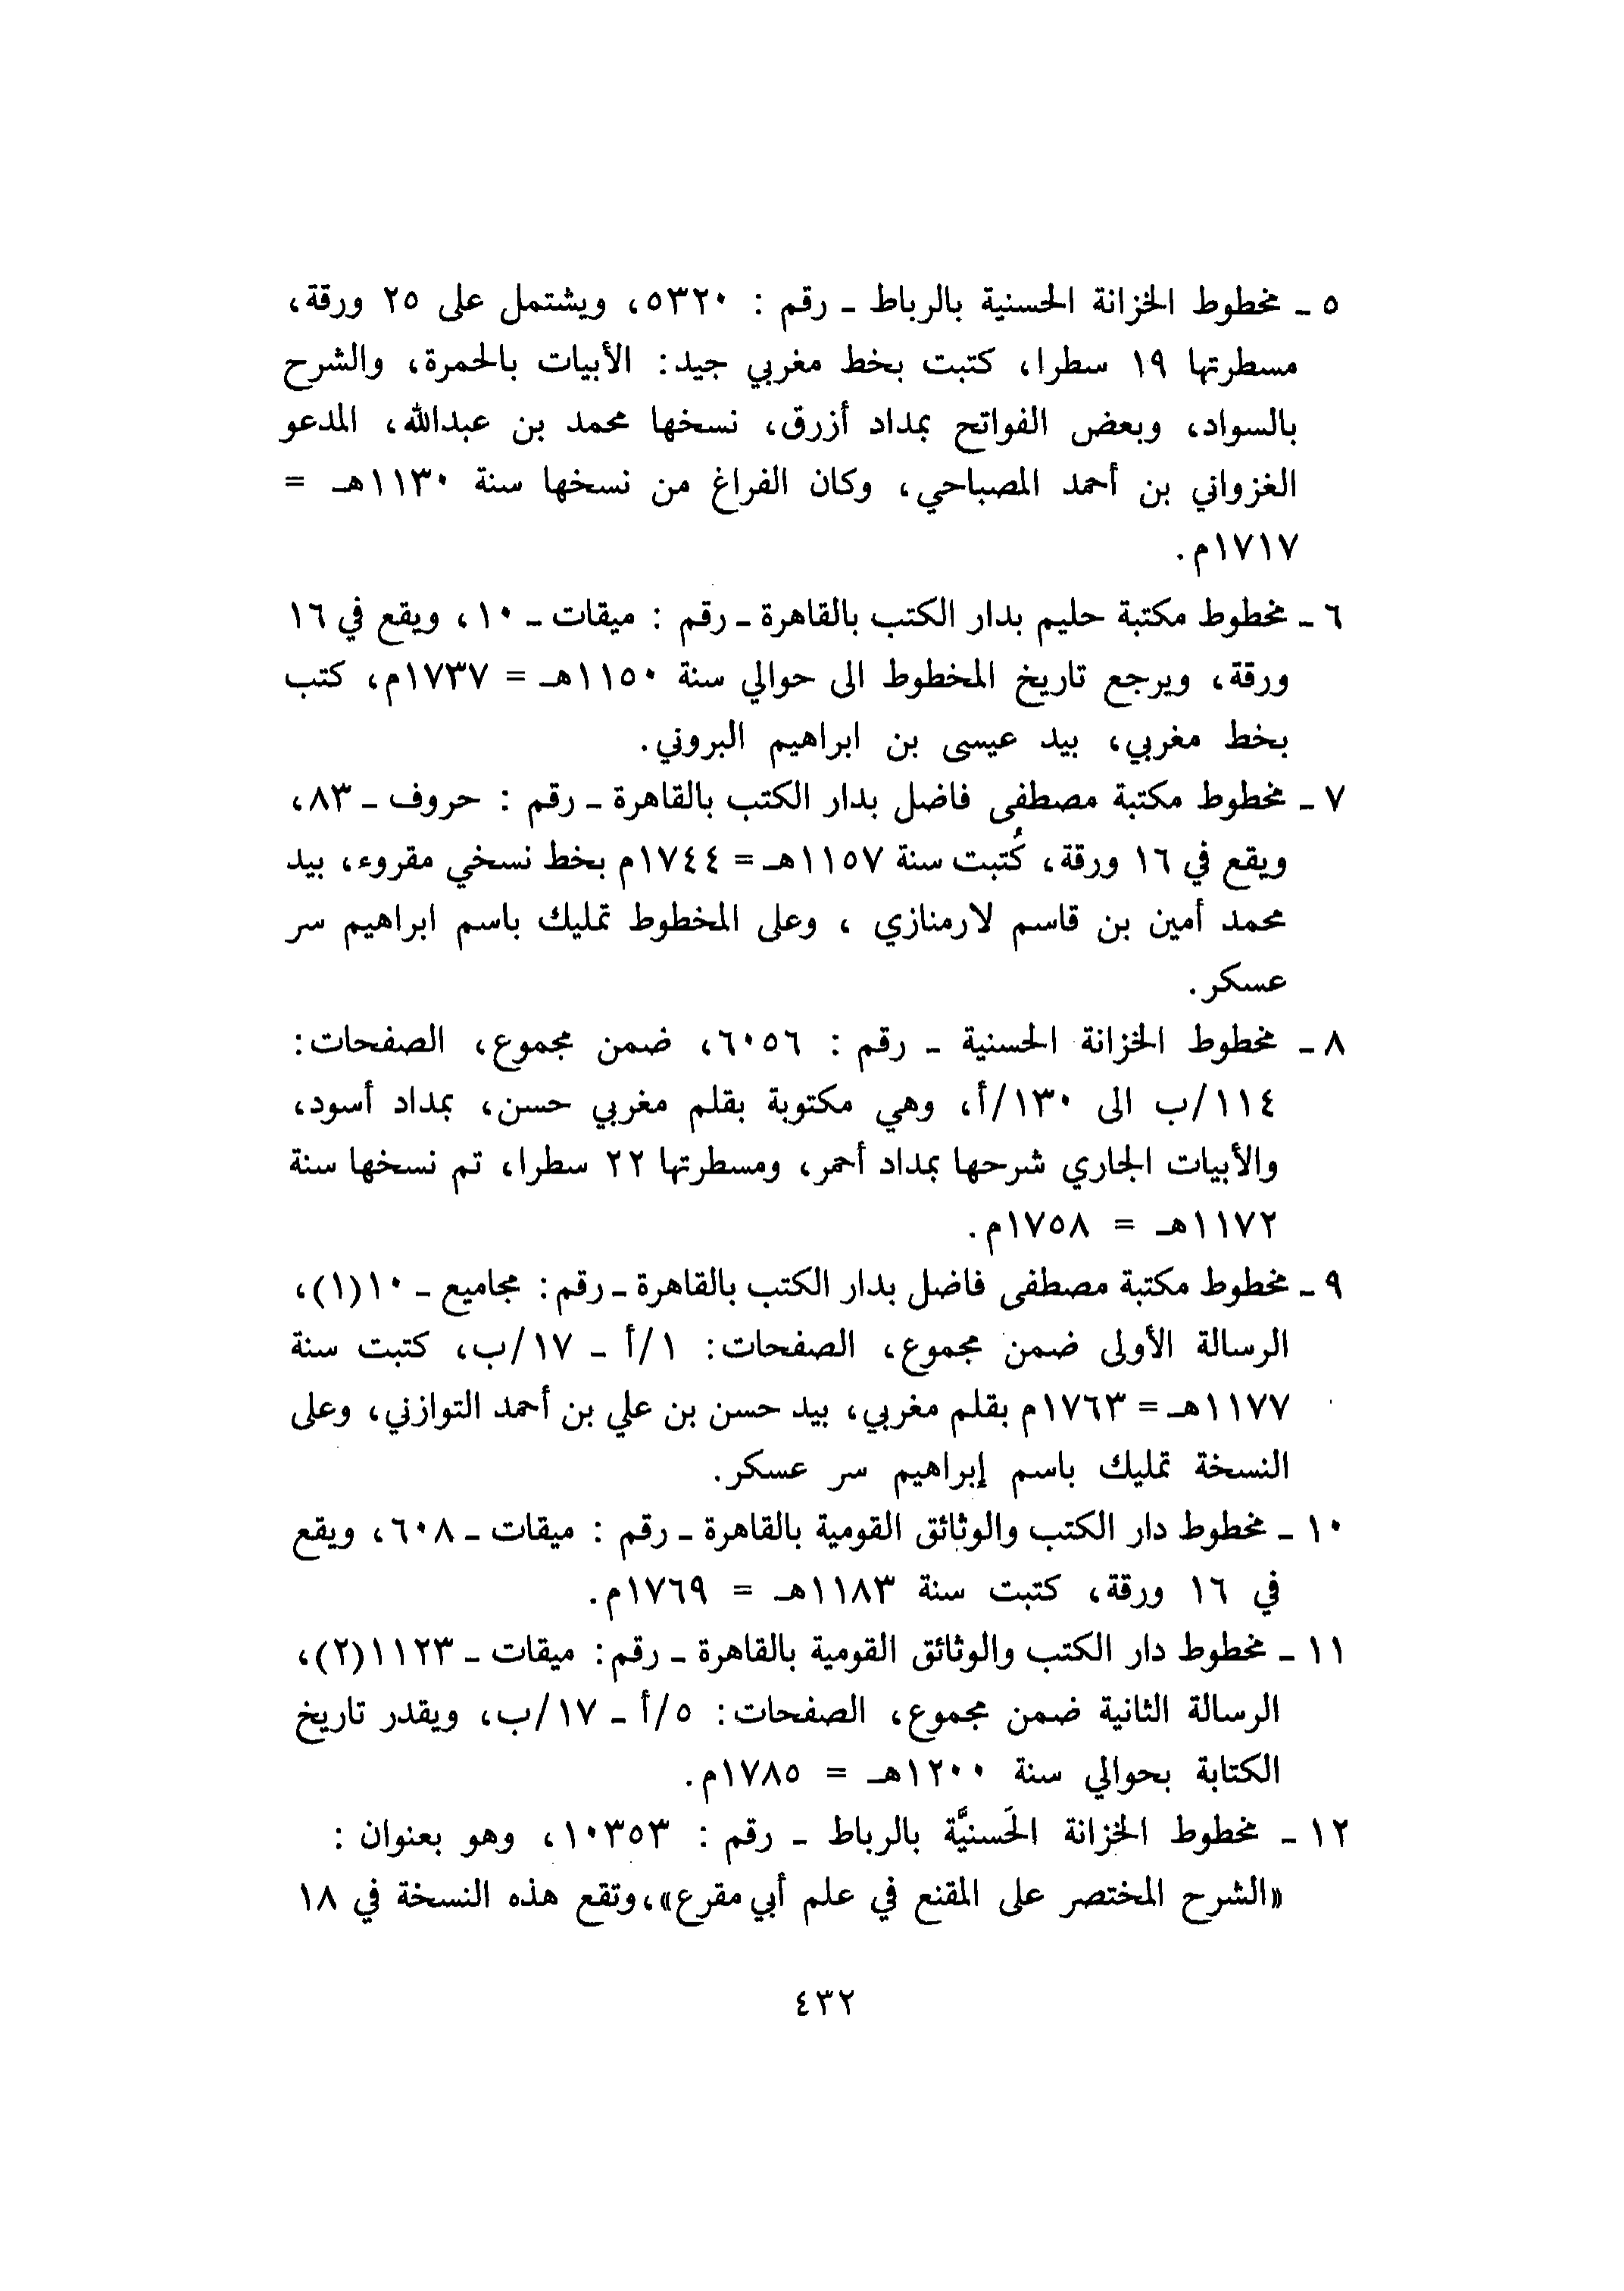 ٥ ـ مخطوط الخزانة الحسنية بالرباط ـ رقم : ٥٣٢٠، ويشتمل على ٢٥ ورقة،
مسطرتها ١٩ سطرا، كتبت بخط مغربي جيد: الأبيات بالحمرة، والشرح
بالسواد، وبعض الفواتح بمداد أزرق، نسخها محمد بن عبدالله، المدعو
الغزواني بن أحمد المصباحي، وكان الفراغ من نسخها سنة ١١٣٠هـ =
١٧١٧م.
٦ ـ مخطوط مكتبة حليم بدار الكتب بالقاهرة ـ رقم : ميقات ـ ١٠، ويقع في ١٦
ورقة، ويرجع تاريخ المخطوط الى حوالي سنة ١١٥٠هـ = ١٧٣٧م، كتب
بخط مغربي، بيد عيسى بن ابراهيم البروني.
٧ ـ مخطوط مكتبة مصطفى فاضل بدار الكتب بالقاهرة ـ رقم : حروف ـ ٨٣،
ويقع في ١٦ ورقة، كُتبت سنة ١١٥٧هـ = ١٧٤٤م بخط نسخي مقروء، بيد
محمد أمين بن قاسم لارمنازي ، وعلى المخطوط تمليك باسم ابراهيم سر
عسكر.
٨ ـ مخطوط الخزانة الحسنية ـ رقم : ٦٠٥٦، ضمن مجموع، الصفحات:
١١٤/ب الى ١٣٠/أ، وهي مكتوبة بقلم مغربي حسن، بمداد أسود،
والأبيات الجاري شرحها بمداد أحمر، ومسطرتها ٢٢ سطرا، تم نسخها سنة
١١٧٢هـ = ١٧٥٨م.
٩ ـ مخطوط مكتبة مصطفى فاضل بدار الكتب بالقاهرة ـ رقم: مجاميع ـ ١٠(١)،
الرسالة الأولى ضمن مجموع، الصفحات: ١/أ ـ ١٧/ب، كتبت سنة
١١٧٧هـ = ١٧٦٣م بقلم مغربي، بيد حسن بن علي بن أحمد التوازني، وعلى
النسخة تمليك باسم إبراهيم سر عسكر.
١٠ ـ مخطوط دار الكتب والوثائق القومية بالقاهرة ـ رقم : ميقات ـ ٦٠٨، ويقع
في ١٦ ورقة، كتبت سنة ١١٨٣هـ = ١٧٦٩م.
١١ ـ مخطوط دار الكتب والوثائق القومية بالقاهرة ـ رقم: ميقات ـ ١١٢٣(٢)،
الرسالة الثانية ضمن مجموع، الصفحات: ٥/أ ـ ١٧/ب، ويقدر تاريخ
الكتابة بحوالي سنة ١٢٠٠هـ = ١٧٨٥م.
١٢ ـ مخطوط الخزانة الحَسنيَّة بالرباط ـ رقم : ١٠٣٥٣، وهو بعنوان :
«الشرح المختصر على المقنع في علم أبي مقرع»،وتقع هذه النسخة في ١٨
٤٣٢